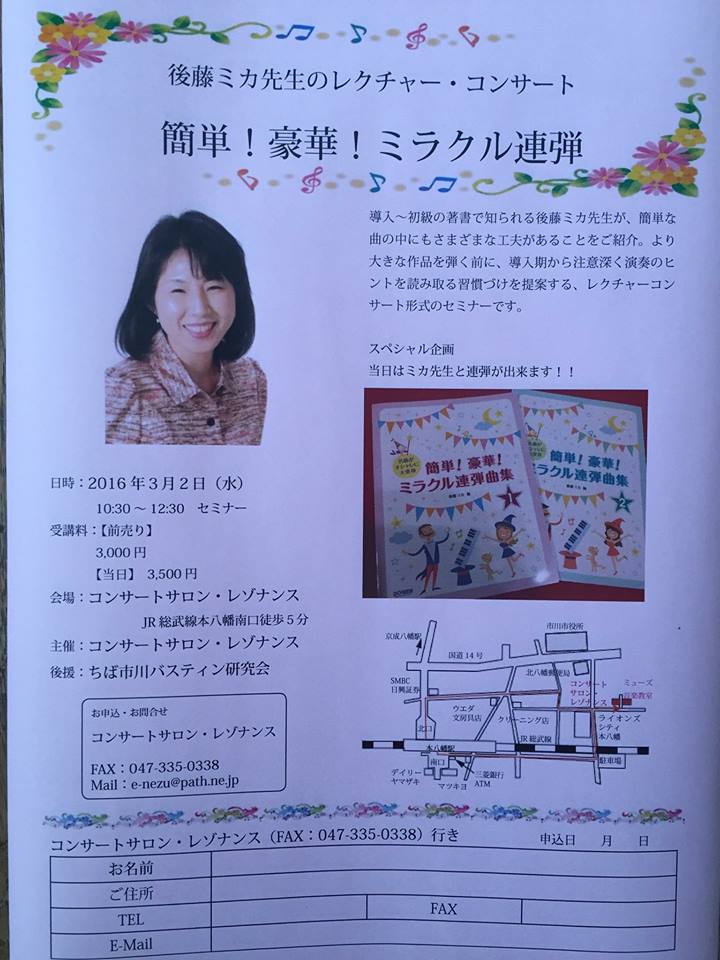 後藤ミカ先生のレクチャー・コンサート
簡単！豪華！ミラクル連弾
導入～初級の著書で知られる後藤ミカ先生が、簡単な
曲の中にもさまざまな工夫があることをご紹介。より
大きな作品を弾く前に、導入期から注意深く演奏のヒ
ントを読み取る習慣づけを提案する、レクチャーコン
サート形式のセミナーです。
スペシャル企画
当日はミカ先生と連弾が出来ます！！
簡単！豪華！
ミラクル連弾曲集
1
簡単！豪華！
ミラクル連弾曲集
2
日時：2016年3月2日（水）
10:30～12:30　セミナー
受講料：【前売り】
3,000円
【当日】 3,500円
会場：コンサートサロン・レゾナンス
JR総武線本八幡南口徒歩5分
主催：コンサートサロン・レゾナンス
後援：ちば市川バスティン研究会
お申込・お問合せ
コンサートサロン・レゾナンス
FAX：047-335-0338
Mail：e-nezu@path.ne.jp
市川市役所
京成八幡駅
国道14号
北八幡郵便局
SMBC
日興証券
コンサート
サロン・
レゾナンス
ミューズ
音楽教室
ウエダ
文房具店
クリーニング店
ライオンズ
シティ
本八幡
北口
JR総武線
本八幡駅
南口
駐車場
デイリー
ヤマザキ
マツキヨ
三菱銀行
ATM
コンサートサロン・レゾナンス（FAX：047-335-0338）行き
申込日　月　日
お名前
ご住所
TEL
FAX
E-Mail